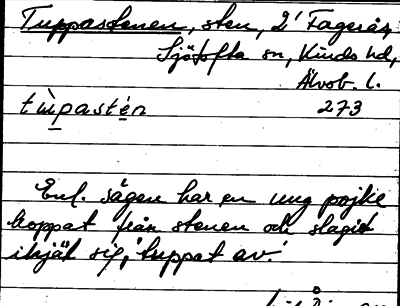 Tuppastenen, sten, 2' Fagerås,
Sjötofta sn, Kinds hd,
Älvsb. l.
tìpastén 273
Enl. sägen har en ung pojke
hoppat från stenen och slagit
ihjäl sig, "tuppat av".